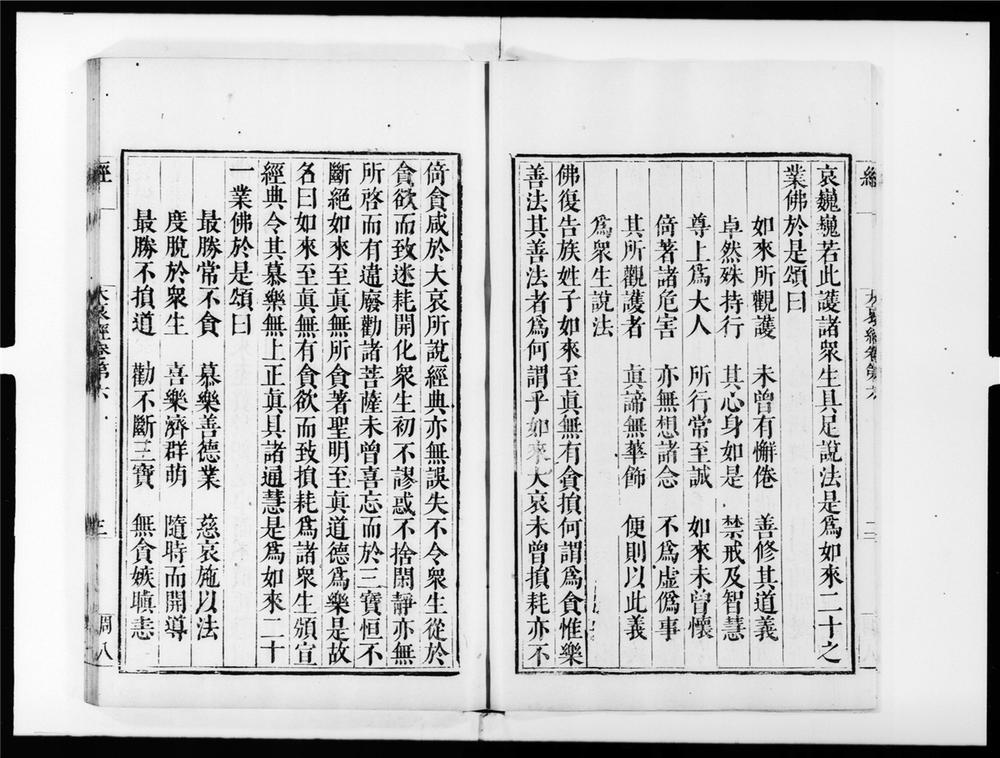 哀巍巍若此護諸衆生具足說法是爲如來二十之
業佛於是頌曰
如來所觀護　未曾有懈倦　善修其道義
卓然殊持行　其心身如是　禁戒及智慧
尊上爲大人　所行常至誠　如來未曾懷
倚著諸危害　亦無想諸念　不爲虛僞事
其所觀護者　眞諦無華飾　便則以此義
爲衆生說法
佛復告族姓子如來至眞無有貪損何謂爲貪惟樂
善法其善法者爲何謂乎如來大哀未曾損耗亦不
倚貪咸於大哀所說經典亦無誤失不令衆生從於
貪欲而致迷耗開化衆生初不謬惑不捨閑靜亦無
所啓而有遺廢勸諸菩薩未曾喜忘而於三寶恒不
斷絕如來至眞無所貪著聖明至眞道德爲樂是故
名曰如來至眞無有貪欲而致損耗爲諸衆生頒宣
經典令其慕樂無上正眞具諸通慧是爲如來二十
一業佛於是頌曰
最勝常不貪　慕樂善德業　慈哀施以法
度脫於衆生　喜樂濟群萌　隨時而開導
最勝不損道　勸不斷三寶　無貪嫉瞋恚
經　大哀經卷第六　三　周八